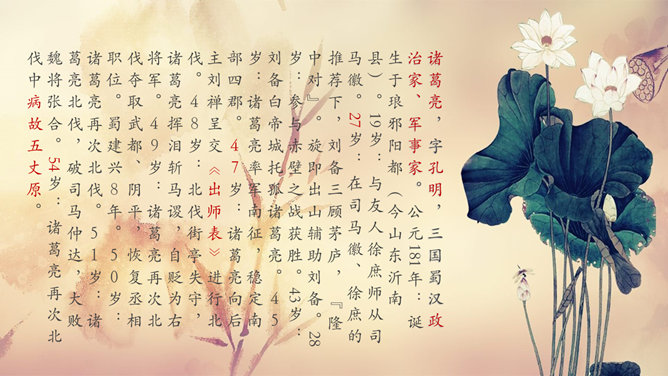 诸葛亮，字孔明，三国蜀汉政
治家、军事家。公元181年：诞
生于琅邪阳都（今山东沂南
县）。19岁：与友人徐庶师从司
马徽。27岁：在司马徽、徐庶的
推荐下，刘备三顾茅庐，『隆
中对』 旋即出山辅助刘备。28
岁：参与赤壁之战获胜。43岁：
刘备白帝城托孤诸葛亮。45
岁：诸葛亮率军南征 稳定南
部四郡。47岁：诸葛亮向后
主刘禅呈交《出师表》进行北
伐。48岁：北伐街亭失守，
诸葛亮挥泪斩马谡，自贬为右
将军。49岁：诸葛亮再次北
伐夺取武都、阴平，恢复丞相
职位。蜀建兴8年。50岁：
诸葛亮再次北伐。51岁：诸
葛亮北伐，破司马仲达，大败
魏将张合。54岁：诸葛亮再次北
伐中病故五丈原。